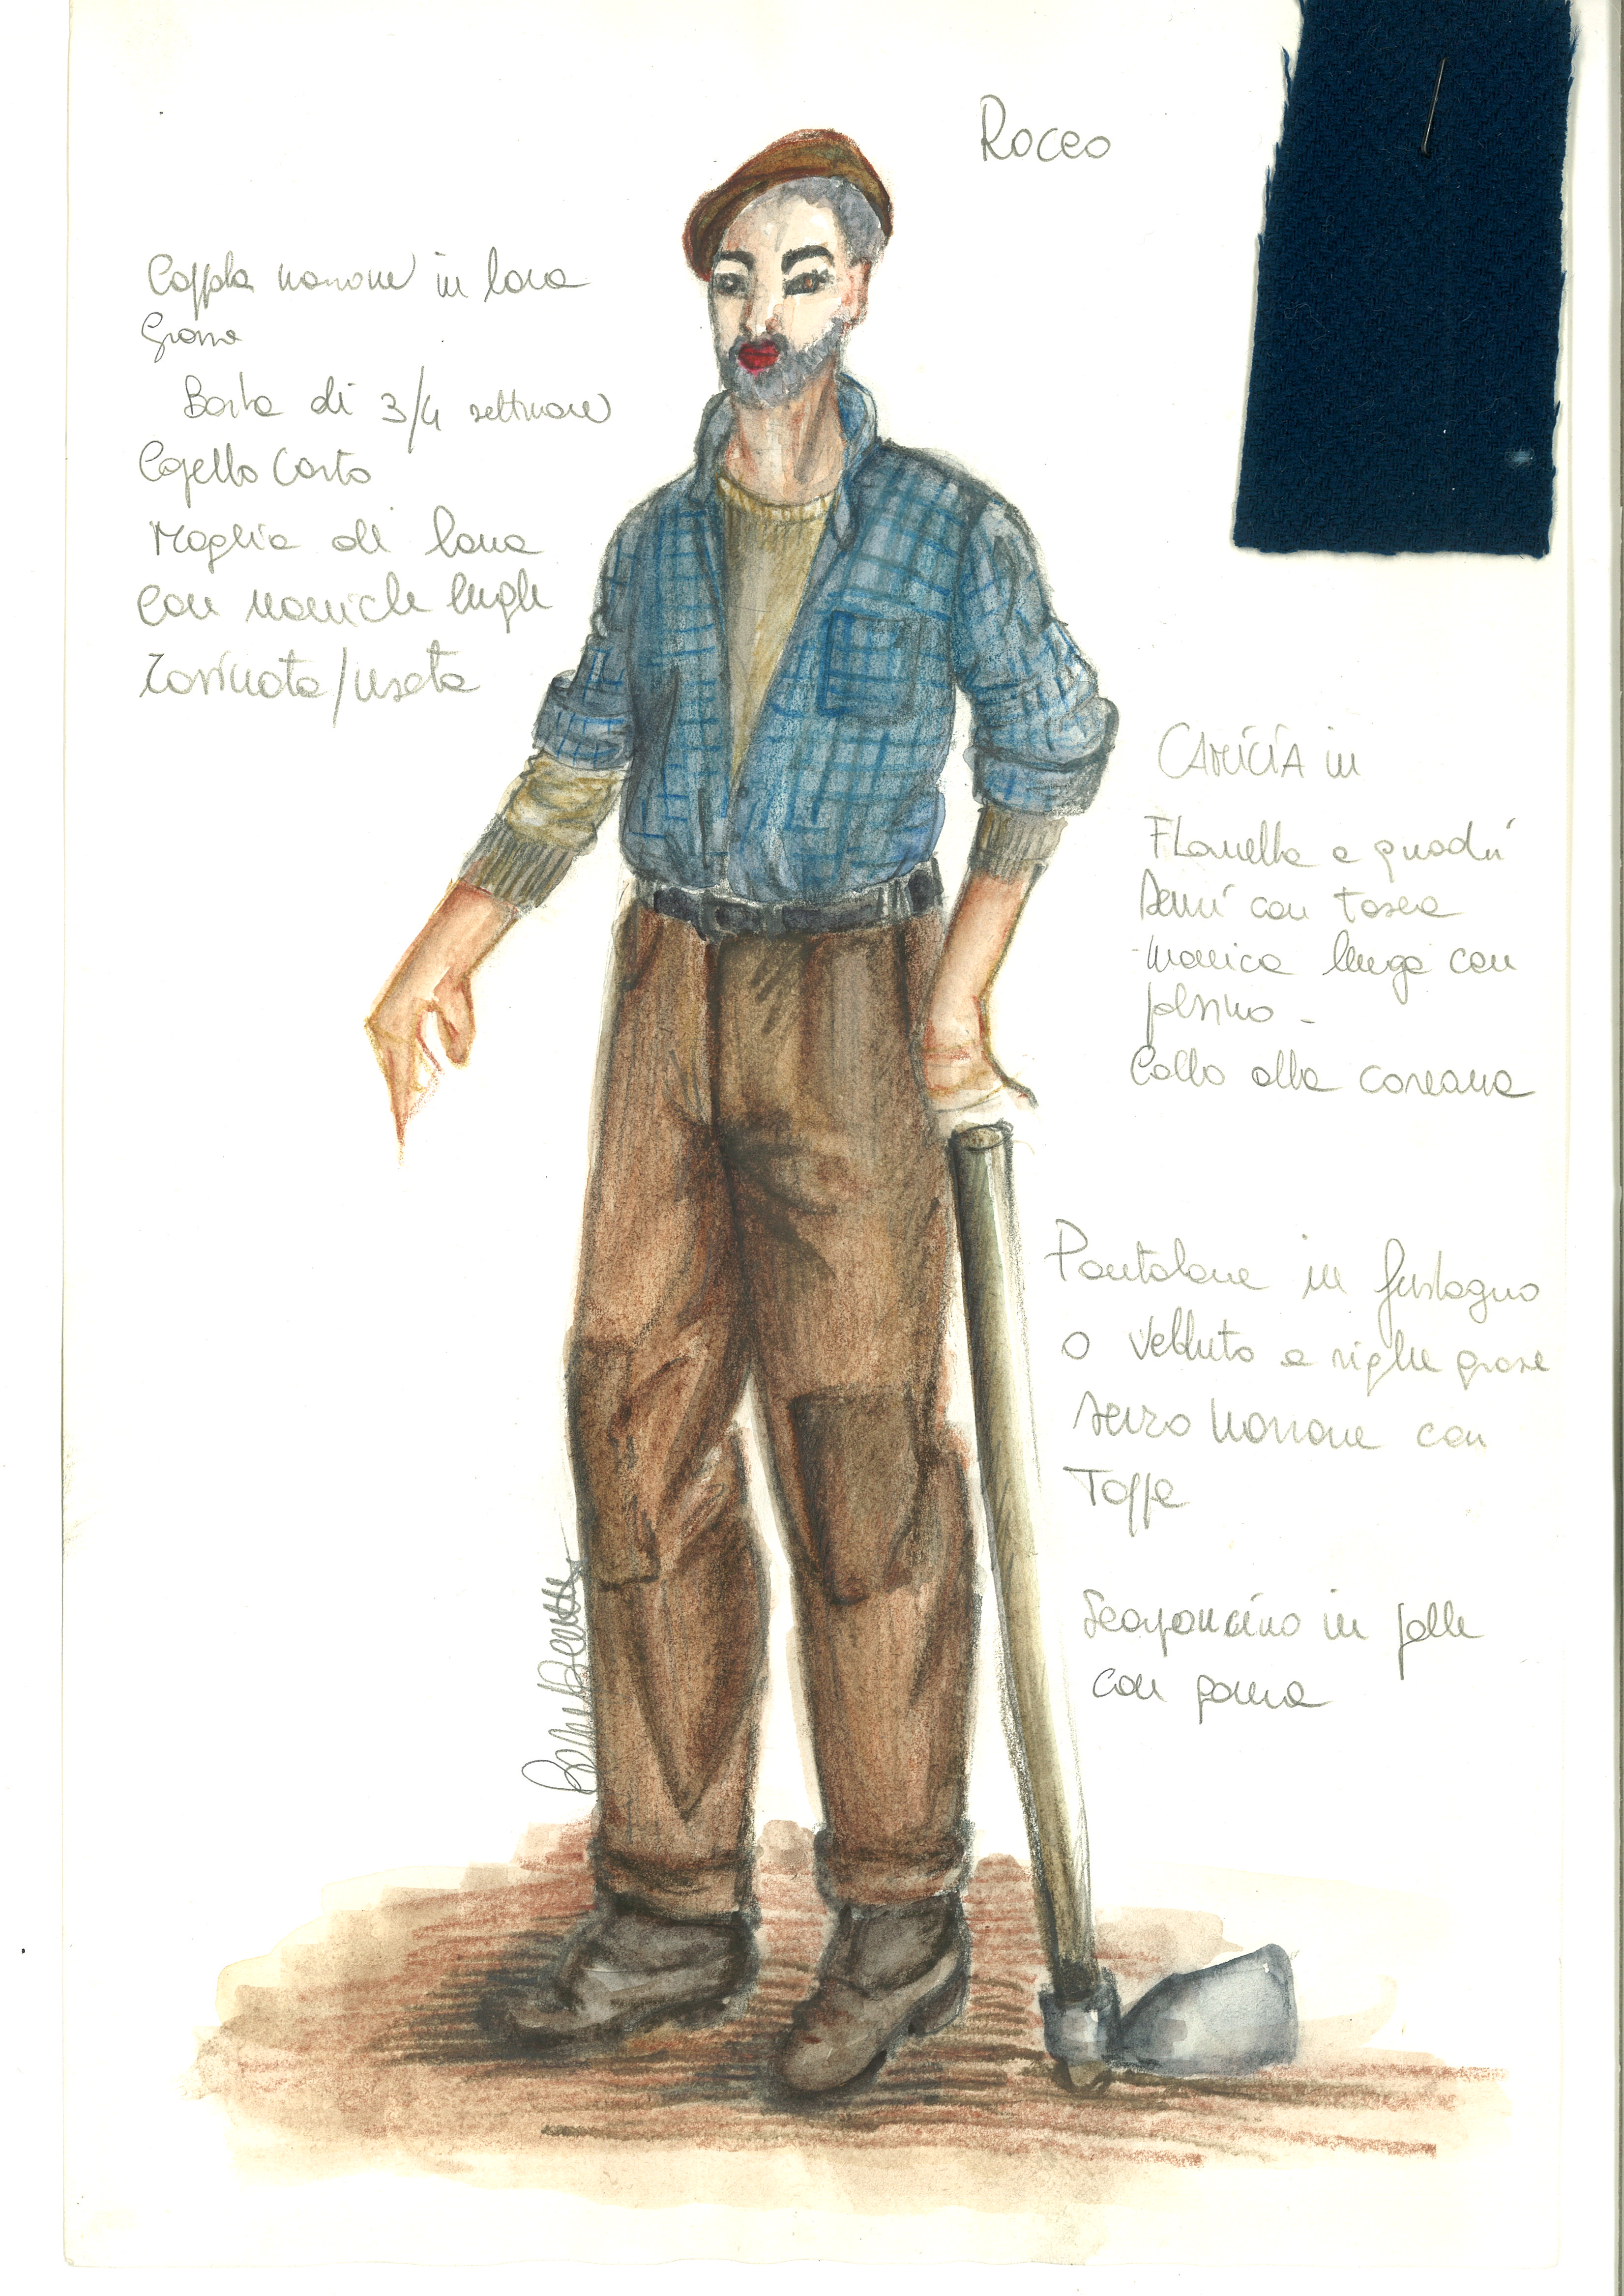 Rocco
Coppola marrone in lana
grossa
Barba di 3/4 settimane
Capello corto
Maglia di lana
con maniche lunghe
consumata/usata
CAMICIA in
Flanella a quadri
con tasca
manica lunga con
polsino -
Collo alla coreana
Pantalone in fustagno
o velluto a righe grosse
marrone con
Toppe
Scarponcino in pelle
con gomma